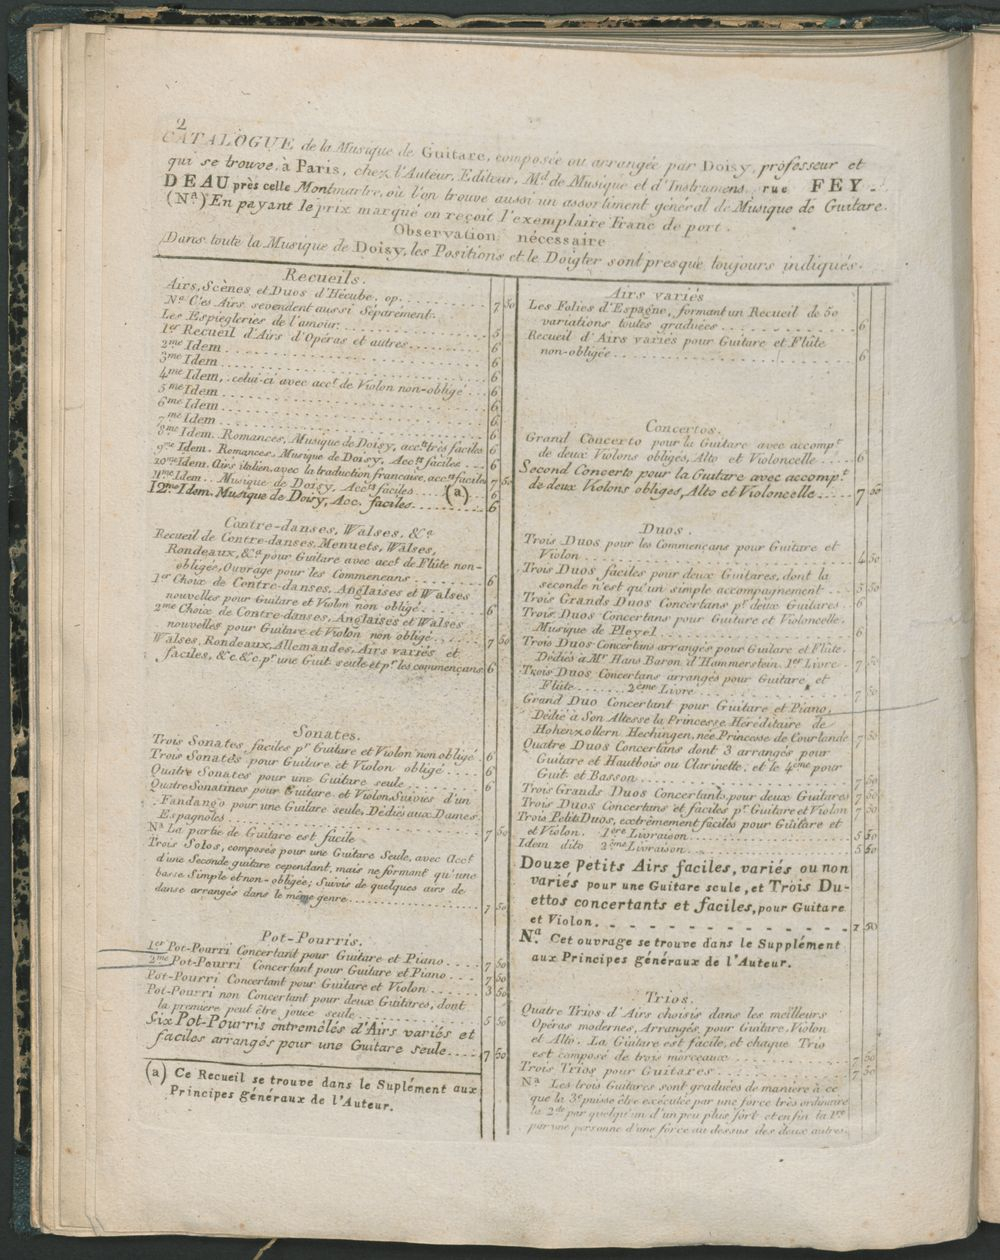 2
CATALOGUE de la Musique de Guitare, composée ou arrangée par Doisy, professeur et
qui se trouve, à Paris, chez l'Auteur, Editeur, Md. de Musique et d'Instrumens, rue FEY-
DEAU près celle Montmartre, où l'on trouve aussi un assortiment général de Musique de Guitare.
(Na.) En payant le prix marqué on reçoit l'exemplaire Franc de port.
Observation nécessaire
Dans toute la Musique de Doisy, les Positions et le Doigter sont presque toujours indiqués.
Recueils.
Airs, Scènes et Duos d'Hécube, op. 7 50
Na. C'es Airs sevendent aussi Séparement.
Les Espiègleries de l'amour. 5
1er Recueil d'Airs d'Opéras et autres. 6
2me Idem 6
3me Idem 6
4me Idem, celui-ci avec acct. de Violon non-obligé 6
5me Idem 6
6me Idem 6
7me Idem 6
8me Idem. Romances, Musique de Doisy, accts très faciles 6
9me Idem. Romances, Musique de Doisy, Accts faciles 6
10me Idem. Airs italien, avec la traduction française, accts faciles 7 50
11me Idem. Musique de Doisy, Accts faciles (a) 6
12me Idem. Musique de Doisy, Acc. faciles. 6
Contre-danses, Walses, &a.
Recueil de Contre-danses, Menuets, Walses,
Rondeaux, &a. pour Guitare avec acct. de Flûte non-
obligée, Ouvrage pour les Commencans 6
1er Choix de Contre-danses, Anglaises et Walses
nouvelles pour Guitare et Violon non obligé 6
2me Choix de Contre-danses, Anglaises et Walses
nouvelles pour Guitare et Violon non obligé 7 50
Walses, Rondeaux, Allemandes, Airs variés et
faciles, &c. &c. pr. une Guit. seule et pr. les commençans 6
Sonates.
Trois Sonates faciles pr. Guitare et Violon non obligé 6
Trois Sonates pour Guitare et Violon obligé 6
Quatre Sonates pour une Guitare seule 6
Quatre Sonatines pour Guitare et Violon, Suivies d'un
Fandango pour une Guitare seule, Dédiés aux Dames
Espagnoles 7 50
Na. La partie de Guitare est facile
Trois Solos, composés pour une Guitare Seule, avec Acct.
d'une Seconde guitare cependant, mais ne formant qu'une
basse Simple et non-obligée; Suivis de quelques airs de
danse arrangés dans le même genre 7 50
Pot-Pourris.
1er Pot-Pourri Concertant pour Guitare et Piano 7 50
2me Pot-Pourri Concertant pour Guitare et Piano 7 50
Pot-Pourri Concertant pour Guitare et Violon 3 50
Pot-Pourri non Concertant pour deux Guitares, dont
la premiere peut être jouée seule 5 50
Six Pot-Pourris entremêlés d'Airs variés et
faciles arrangés pour une Guitare seule 7 50
(a) Ce Recueil se trouve dans le Suplément aux
Principes généraux de l'Auteur.
Airs variés
Les Folies d'Espagne, formant un Recueil de 50
variations toutes graduées 6
Recueil d'Airs variés pour Guitare et Flûte
non-obligée 6
Concertos.
Grand Concerto pour la Guitare avec accompt.
de deux Violons obligés, Alto et Violoncelle 6
Second Concerto pour la Guitare avec accompt.
de deux Violons obligés, Alto et Violoncelle 7 50
Duos.
Trois Duos pour les Commençans pour Guitare et
Violon 4 50
Trois Duos faciles pour deux Guitares, dont la
seconde n'est qu'un simple accompagnement 5 50
Trois Grands Duos Concertans pt. deux Guitares 6
Trois Duos Concertans pour Guitare et Violoncelle,
Musique de Pleyel 6
Trois Duos Concertans arrangés pour Guitare et Flûte.
Dédiés à Mr. Hans Baron d'Hammerstein. 1er Livre 7 50
Trois Duos Concertans arrangés pour Guitare et
Flûte 2eme Livre 7 50
Grand Duo Concertant pour Guitare et Piano,
Dédié à Son Altesse la Princesse Héréditaire de
Hohenzollern Hechingen, née Princesse de Courlande 7 50
Quatre Duos Concertans dont 3 arrangés pour
Guitare et Hautbois ou Clarinette; et le 4eme pour
Guit. et Basson 7 50
Trois Grands Duos Concertants, pour deux Guitares 7 50
Trois Duos Concertans et faciles pr. Guitare et Violon 7 50
Trois Petits Duos, extrêmement faciles pour Guitare et
et Violon. 1ere Livraison 5 50
Idem dito 2eme Livraison 5 50
Douze Petits Airs faciles, variés ou non
variés pour une Guitare seule, et Trois Du-
ettos concertants et faciles, pour Guitare
et Violon. 7 50
Na. Cet ouvrage se trouve dans le Supplément
aux Principes généraux de l'Auteur.
Trios.
Quatre Trios d'Airs choisis dans les meilleurs
Opéras modernes, Arrangés pour Guitare, Violon
et Alto. La Guitare est facile, et chaque Trio
est composé de trois morceaux 7 50
Trois Trios pour Guitares 7 50
Na. Les trois Guitares sont graduées de manière à ce
que la 3e puisse être exécutée par une force très ordinaire
la 2de par quelqu'un d'un peu plus fort et enfin la 1re
par une personne d'une force au dessus des deux autres.